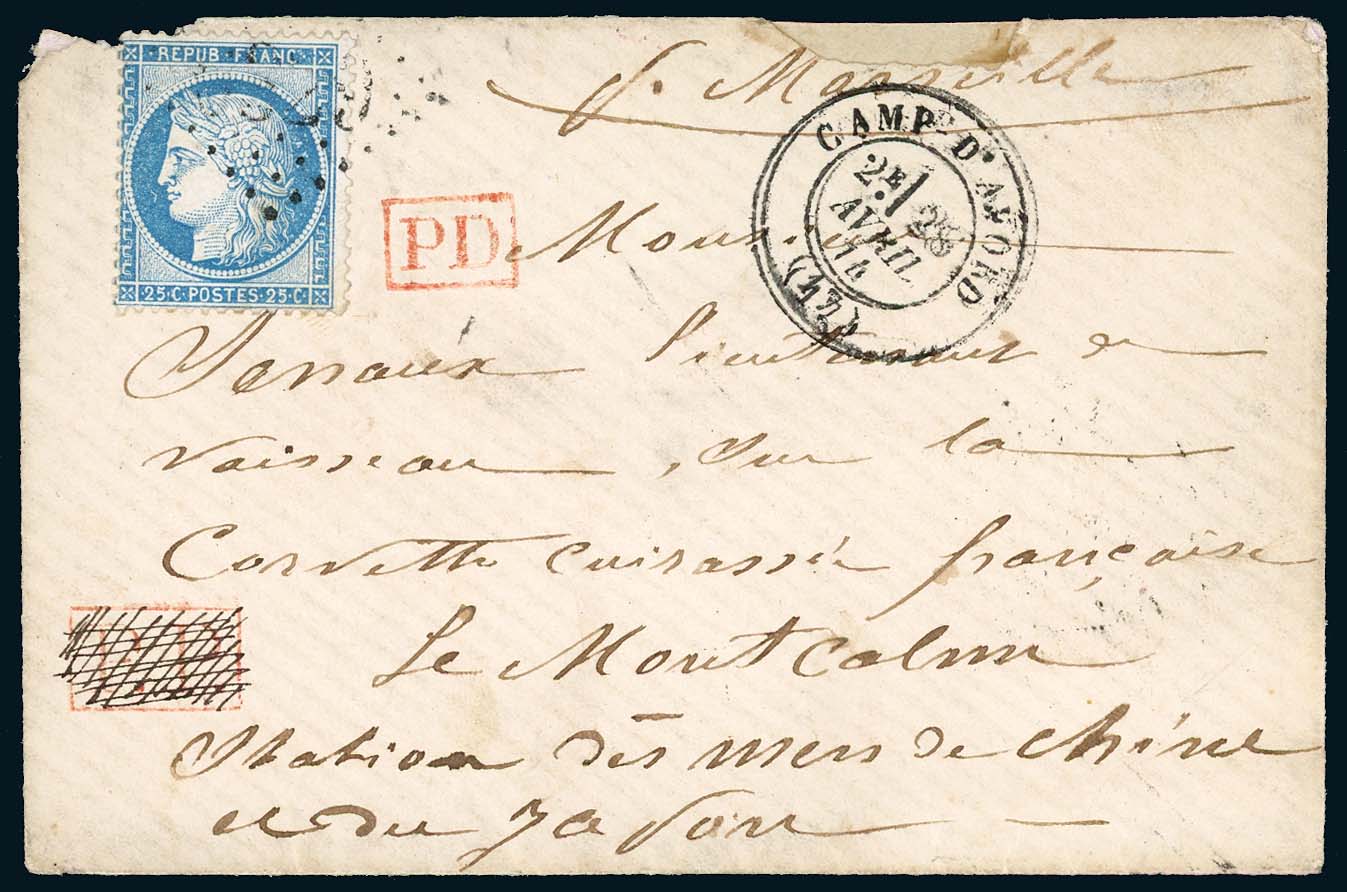 REPUB·FRANC·
25·C·POSTES·25·C·
p. Marseille
CAMP D'AVORD
2E
28
AVRIL
74
PD
Monsieur
lieutenant de
vaisseau, sur la
Corvette cuirassée française
Le Montcalm
Station des mers de Chine
et du Japon